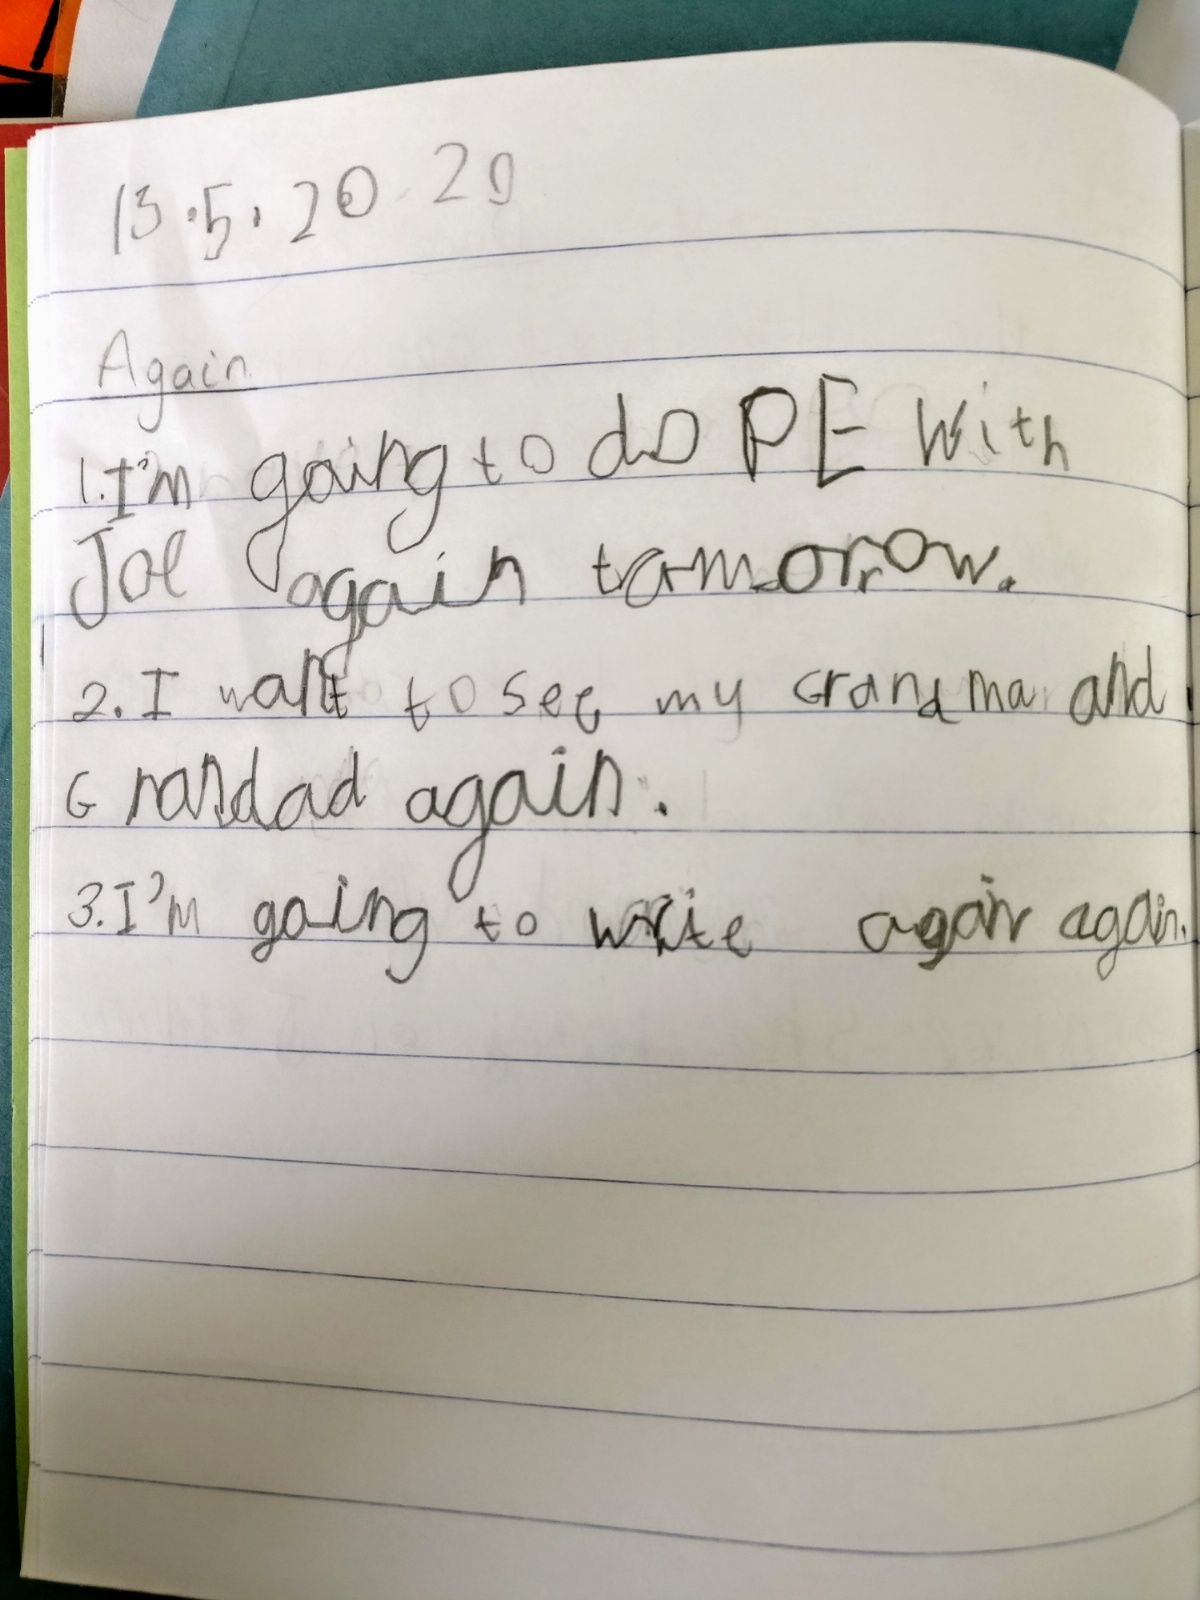 13.5.2020
Again
1.I'm going to do PE with
Joe again tomorrow.
2.I want to see my Grandma and
Grandad again.
3.I'm going to write again again.